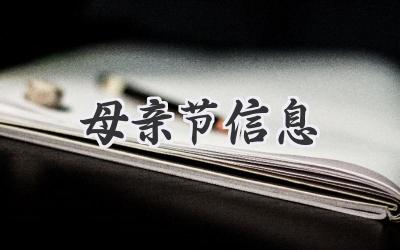 母亲节信息